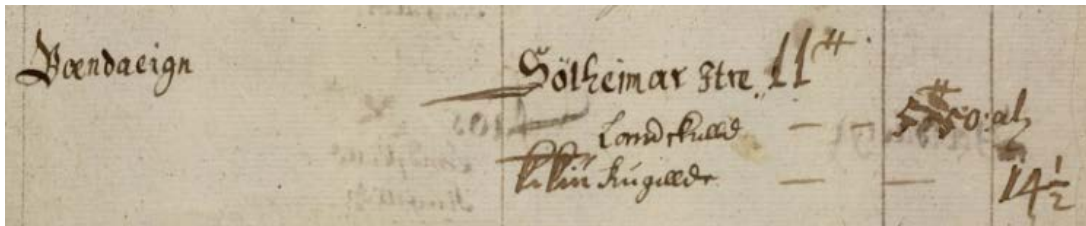 Bændaeign Sölheimar Ytre 11 #
Landskulld — — 50 al
kúgillde — — 14 1/2